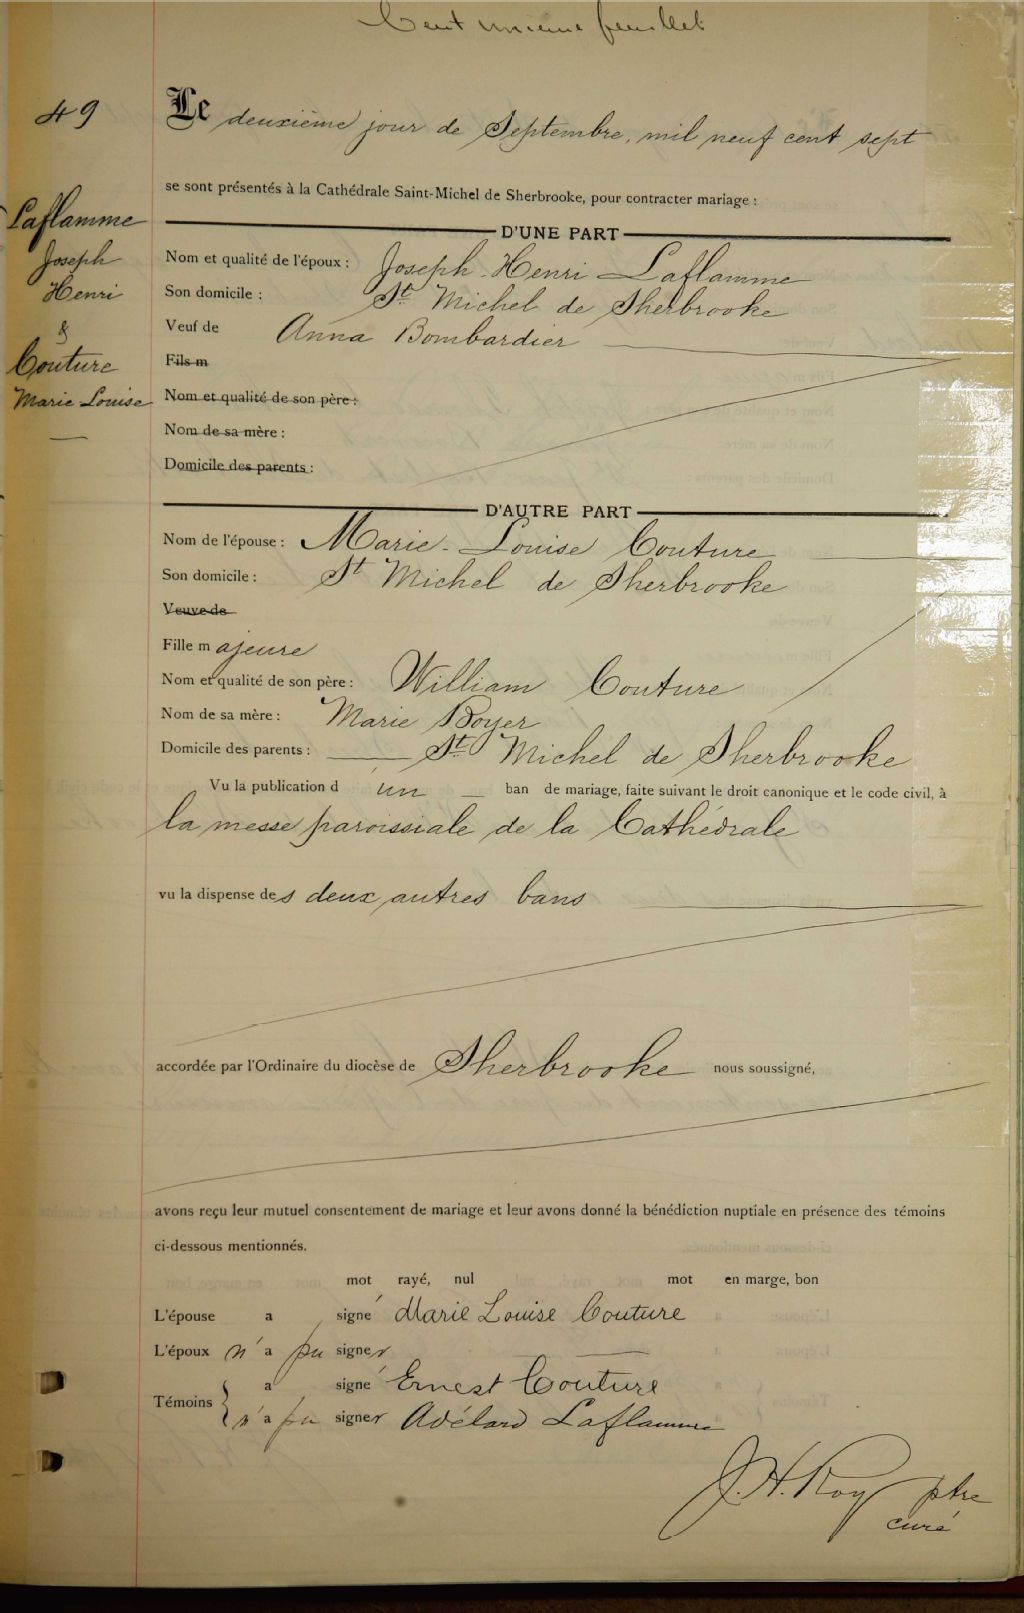 Cent unième feuillet
49
Le deuxième jour de Septembre, mil neuf cent sept
se sont présentés à la Cathédrale Saint-Michel de Sherbrooke, pour contracter mariage :
Laflamme
Joseph
Henri
&
Couture
Marie Louise
D'UNE PART
Nom et qualité de l'époux : Joseph-Henri Laflamme
Son domicile : St Michel de Sherbrooke
Veuf de Anna Bombardier
Fils m
Nom et qualité de son père :
Nom de sa mère :
Domicile des parents :
D'AUTRE PART
Nom de l'épouse : Marie-Louise Couture
Son domicile : St Michel de Sherbrooke
Veuve de
Fille majeure
Nom et qualité de son père : William Couture
Nom de sa mère : Marie Boyer
Domicile des parents : St Michel de Sherbrooke
Vu la publication d'un ban de mariage, faite suivant le droit canonique et le code civil, à
la messe paroissiale de la Cathédrale
vu la dispense des deux autres bans
accordée par l'Ordinaire du diocèse de Sherbrooke nous soussigné,
avons reçu leur mutuel consentement de mariage et leur avons donné la bénédiction nuptiale en présence des témoins
ci-dessous mentionnés.
mot rayé, nul mot en marge, bon
L'épouse a signé Marie Louise Couture
L'époux n'a pu signer
Témoins { a signé Ernest Couture
n'a pu signer Adélard Laflamme
J. H. Roy ptre
curé